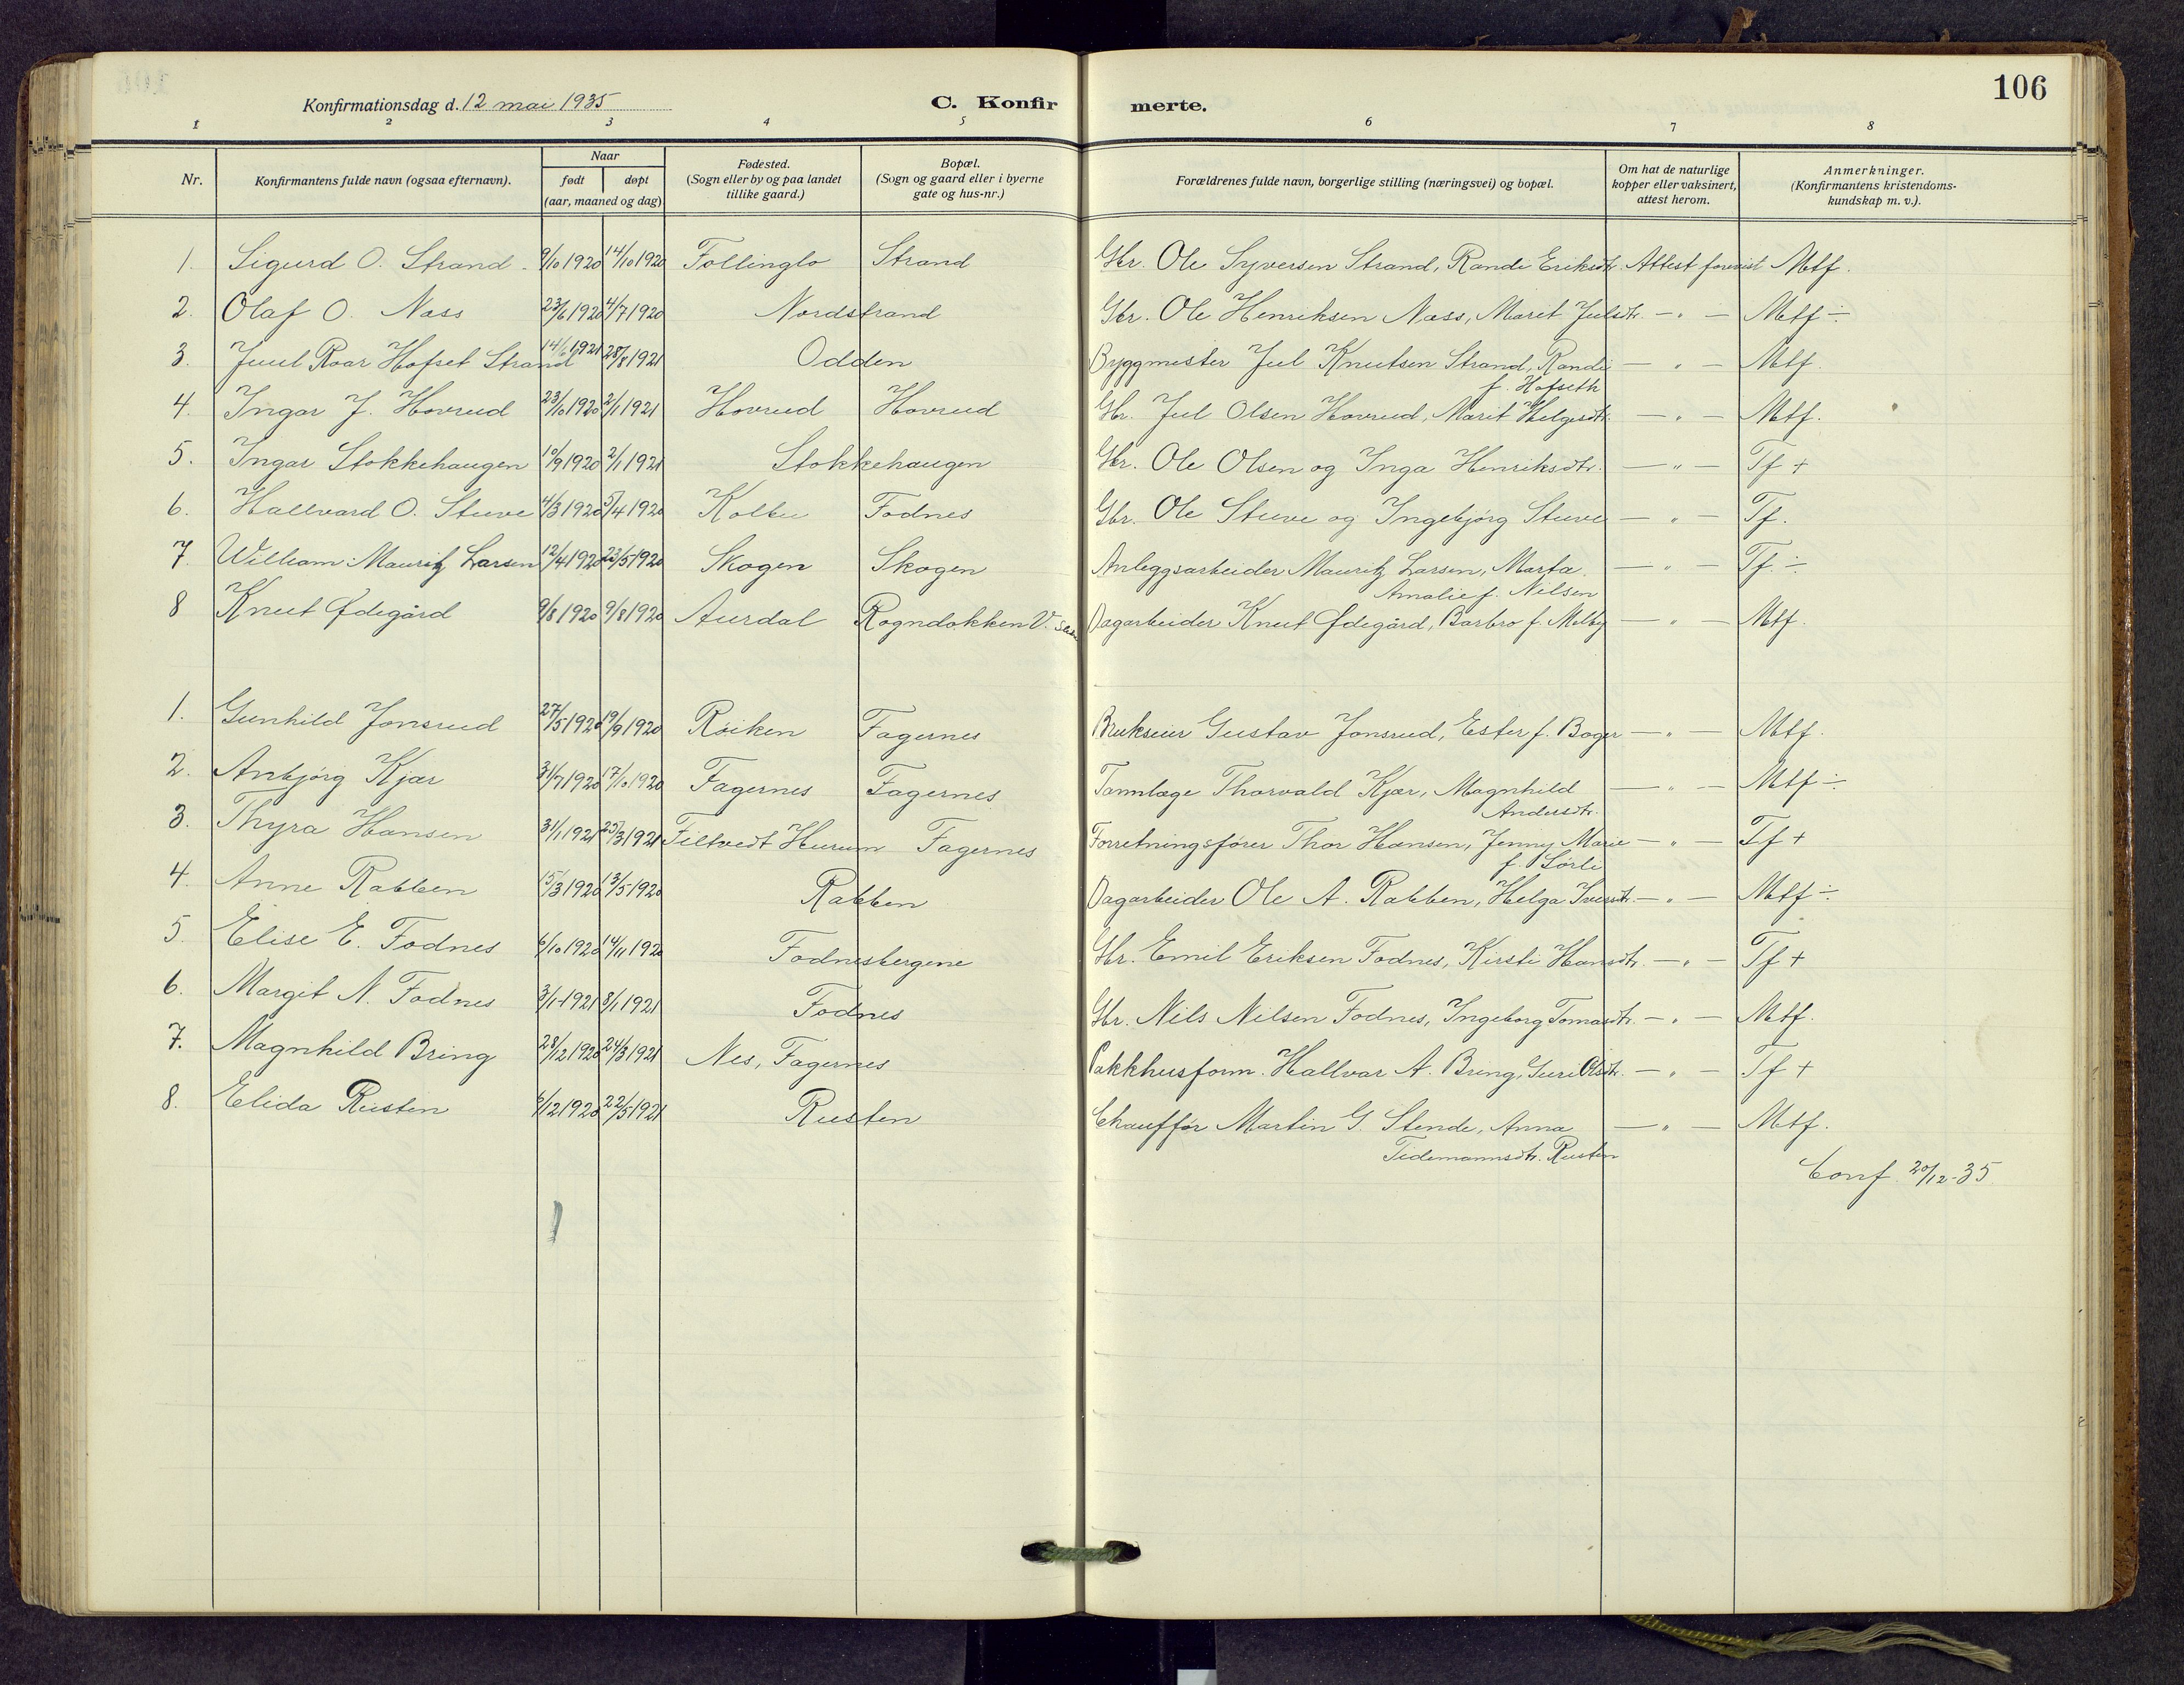 106
Konfirmationsdag d. 12 mai 1935 C. Konfirmerte.
1 2 3 4 5 6 7 8
Nr. Konfirmantens fulde navn (ogsaa efternavn). Naar født døpt (aar, maaned og dag) Fødested. (Sogn eller by og paa landet tillike gaard.) Bopæl. (Sogn og gaard eller i byerne gate og hus-nr.) Forældrenes fulde navn, borgerlige stilling (næringsvei) og bopæl. Om hat de naturlige kopper eller vaksinert, attest herom. Anmerkninger. (Konfirmantens kristendoms-kundskap m. v.).
1. Sigurd O. Strand. 9/10 1920 14/10 1920 Follinglo Strand Gbr. Ole Syversen Strand, Randi Eriksdtr. Attest forevist Mtf.
2. Olaf O. Næss 23/6 1920 4/7 1920 Nordstrand Gbr. Ole Henriksen Næss, Marit Julsdtr. — " — Mtf ÷
3. Juul Roar Hofset Strand 14/6 1921 28/8 1921 Odden Byggmester Jul Knutsen Strand, Randi — " — Mtf.
f. Hofseth
4. Ingar J. Hovrud 23/10 1920 2/1 1921 Hovrud Hovrud Gbr. Jul Olsen Hovrud, Marit Helgesdtr. — " — Mtf.
5. Ingar Stokkehaugen 10/9 1920 2/1 1921 Stokkehaugen Gbr. Ole Olsen og Inga Henriksdtr. — " — Tf +
6. Hallvard O. Stuve 4/3 1920 5/4 1920 Kolbu Fodnes Gbr. Ole Stuve og Ingebjørg Stuve — " — Tf.
7. William Mauritz Larsen 12/4 1920 23/5 1920 Skogen Skogen Anleggsarbeider Mauritz Larsen, Marta — " — Tf. ÷
Amalie f. Nilsen
8 Knut Ødegård 9/8 1920 9/8 1920 Aurdal Rogndokken V. Dagarbeider Knut Ødegård, Barbro f. Melby — " — Mtf.
1. Gunhild Jonsrud 27/5 1920 19/9 1920 Röiken Fagernes Brukseier Gustav Jonsrud, Ester f. Boger — " — Mtf.
2. Anbjørg Kjær 31/7 1920 17/10 1920 Fagernes Fagernes Tannlæge Thorvald Kjær, Magnhild — " — Mtf ÷
Andersdtr.
3. Thyra Hansen 31/1 1921 25/3 1921 Filtvedt Hurum Fagernes Forretningsfører Thor Hansen, Jenny Marie — " — Tf +
f. Sørli
4. Anne Rabben 15/3 1920 13/5 1920 Rabben Dagarbeider Ole A. Rabben, Helga Iversdtr. — " — Mtf ÷
5. Elise E. Fodnes 6/10 1920 14/11 1920 Fodnesbergene Gbr. Emil Eriksen Fodnes, Kirsti Hansdtr. — " — Tf +
6. Margit N. Fodnes 3/1 1921 8/1 1921 Fodnes Gbr. Nils Nilsen Fodnes, Ingeborg Tomasdtr. — " — Mtf.
7. Magnhild Bring 28/12 1920 24/3 1921 Nes, Fagernes Pakkhusform. Hallvar A. Bring, Guri Olsdtr. — " — Tf +
8. Elida Rusten 6/12 1920 22/5 1921 Rusten Chauffør Martin G. Stende, Anna — " — Mtf.
Tidemannsdtr. Rusten
Conf. 20/12-35.